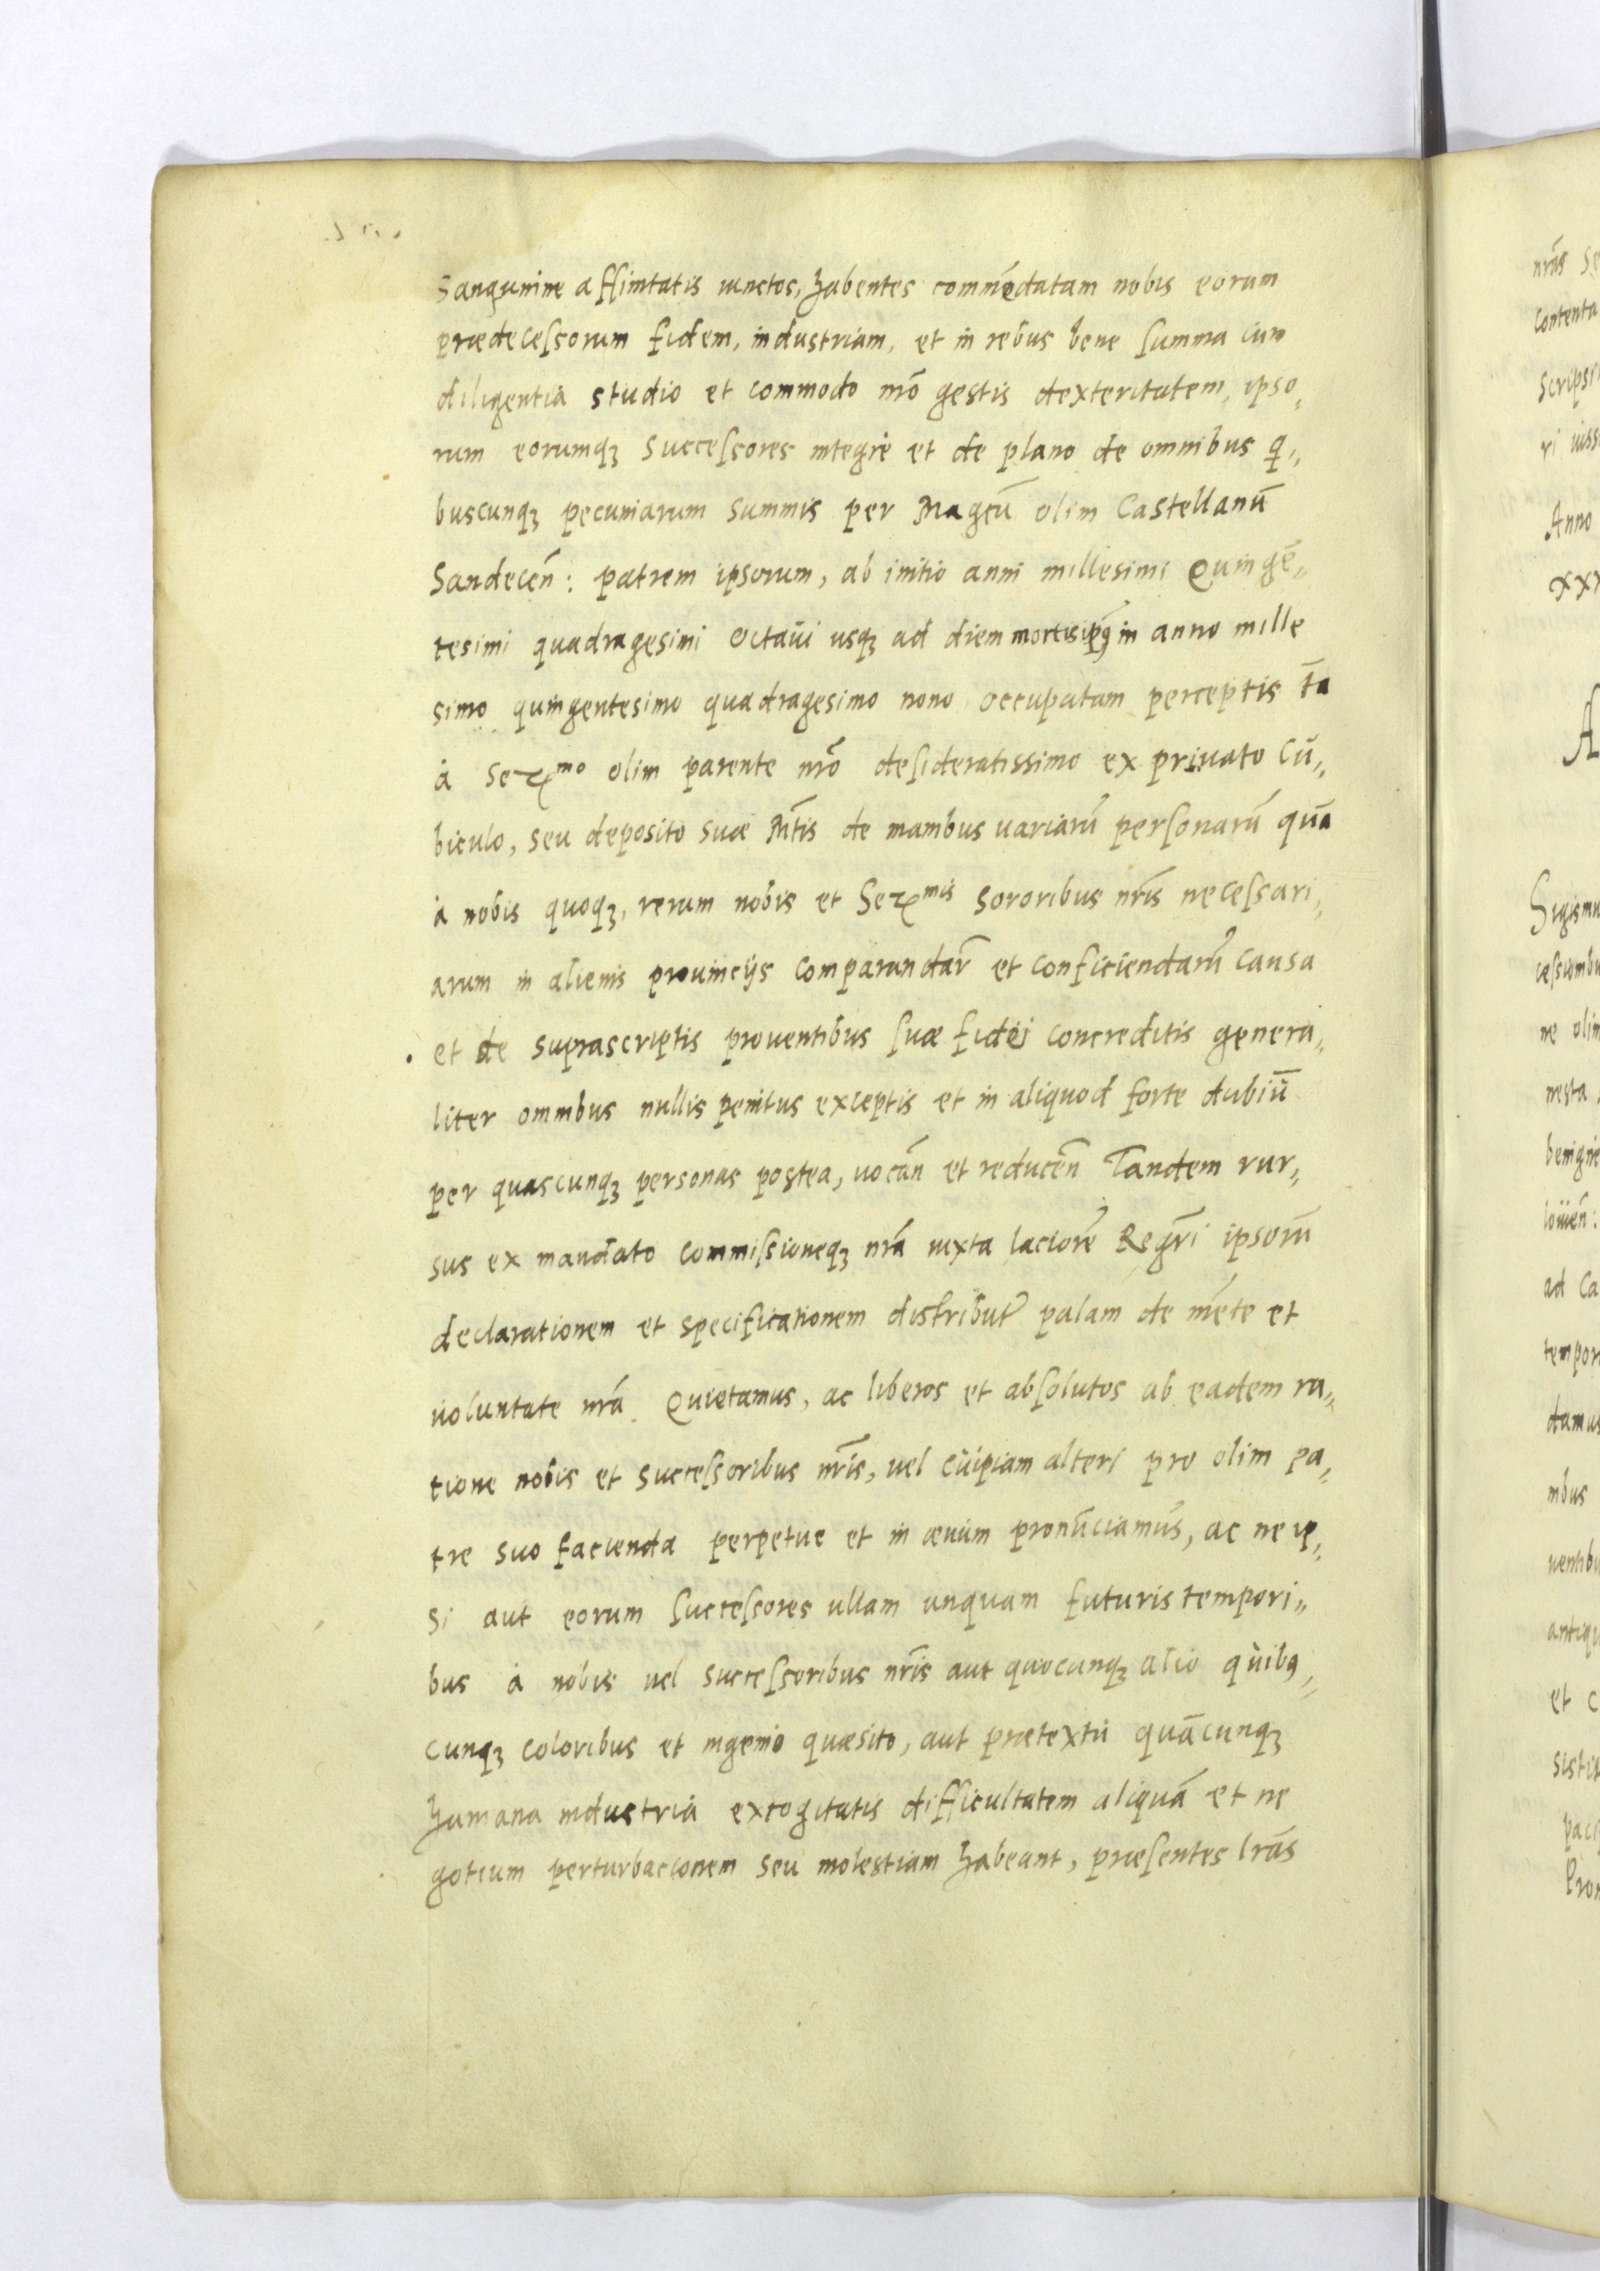 Sanguinine affinitatis iunctos, habentes commẽdatam nobis eorum
prædecessorum fidem, industriam, et in rebus bene summa cum
diligentia studio et commodo nr̃o gestis dexteritatem, ipso„
rum eorumqꝫ successores integrè et de plano de omnibus q̃„
buscunqꝫ pecuniarum summis per Magcũ olim Castellanũ
Sandeceñ: patrem ipsorum, ab initio anni millesimi Quingẽ„
tesimi quadragesimi octaui usqꝫ ad diem mortis ipsius in anno mille
simo quingentesimo quadragesimo nono occupatam perceptis tã
à Serᵐᵒ olim parente nr̃o desideratissimo ex priuato Cũ„
biculo, seu deposito suæ Mt̃is de manibus uariarũ personarũ quã
à nobis quoqꝫ, rerum nobis et Serᵐⁱˢ sororibus nr̃is necessari„
arum in alienis prouincijs comparandar̃ et conficiendarũ causa
et de suprascriptis prouentibus suæ fidei concreditis genera„
liter omnibus nullis penitus exceptis et in aliquod forte dubiũ
per quascunqꝫ personas postea, uocañ et reduceñ Tandem rur„
sus ex mandato commissioneqꝫ nr̃a iuxta laciorẽ Regr̃i ipsorũ
declarationem et specificationem distribut̃ palam de mẽte et
uoluntate nr̃a Quietamus, ac liberos et absolutos ab eadem ra„
tione nobis et successoribus nr̃is, uel cuipiam alteri pro olim pa„
tre suo facienda perpetue et in æuum pronũciamus, ac ne ip„
si aut eorum successores ullam unquam futuris tempori„
bus à nobis uel successoribus nr̃is aut quocunqꝫ alio quibꝯ„
cunqꝫ coloribus et ingenio quæsito, aut prætextu quãcunqꝫ
humana industria excogitatis difficultatem aliquã et ne
gotium perturbacionem seu molestiam habeant, præsentes lr̃as